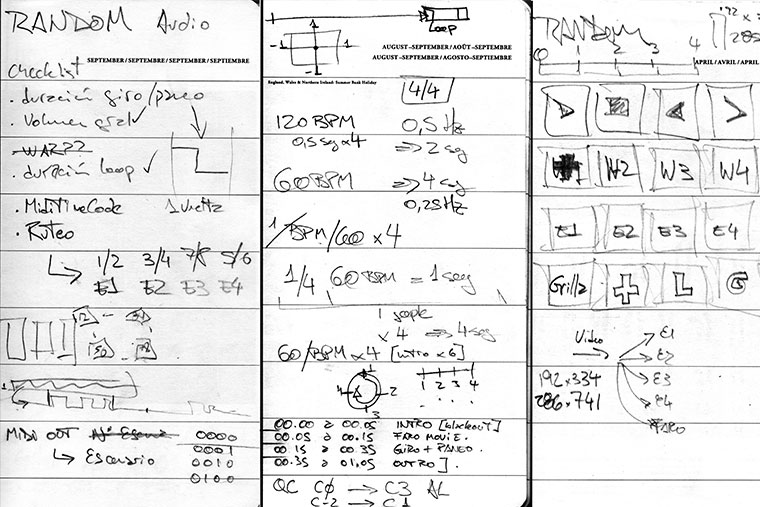 RANDOM Audio
SEPTEMBER / SEPTEMBRE / SEPTEMBER / SEPTIEMBRE
checklist
. duración giro/paneo
. Volumen gral ✓
. duración loop ✓
. MidiTimeCode 1 vuelta
. Ruteo
↳ 1/2 3/4 7/8 5/6
E1 E2 E3 E4
1
MIDI OUT Nº Escena 0000
↳ Escenario 0001
0010
0100
Loop
-1 1
-1
AUGUST–SEPTEMBER / AOÛT–SEPTEMBRE
AUGUST–SEPTEMBER / AGOSTO–SEPTIEMBRE
England, Wales & Northern Ireland: Summer Bank Holiday
4/4
120 BPM 0,5 Hz
0,5 seg x4 ⇒ 2 seg
60 BPM ⇒ 4 seg
0,25Hz
1/BPM/60 x 4
1/4 60 BPM = 1 seg
x 4 ⇒ 4 seg
60/BPM x 4 [intro x 6]
1
4 2
3
1 2 3 4
00.00 a 00.05 INTRO [blackout]
00.05 a 00.15 FARO MOVIE.
00.15 a 00.35 GIRO + PANEO.
00.35 a 01,05 OUTRO ].
QC CØ → C3 AL
C-2 → C1
RANDOM
192 x
285
0 1 2 3 4
APRIL / AVRIL / APRIL
W2 W3 W4
E1 E2 E3 E4
Grilla L G
Video
E1
E2
192 x 334 E3
286 x 741 E4
FARO